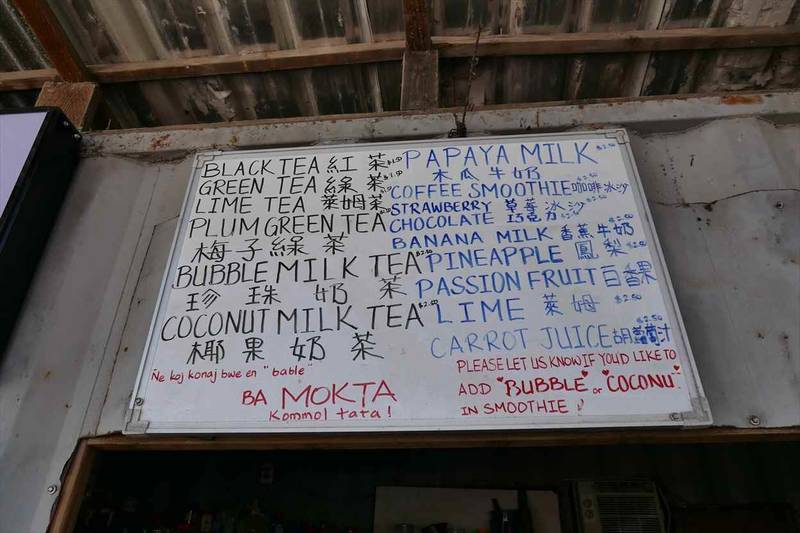 BLACK TEA 紅 茶 $1.00
GREEN TEA 綠 茶 $1.00
LIME TEA 萊姆茶
PLUM GREEN TEA
梅 子 綠 茶
BUBBLE MILK TEA $2.00
珍 珠 奶 茶
COCONUT MILK TEA $2.00
椰 果 奶 茶
Ñe koj konaj bwe en "bable"
BA MOKTA
Kommol tata!
PAPAYA MILK $2.50
木 瓜 牛 奶
COFFEE SMOOTHIE 咖啡冰沙 $2.50
STRAWBERRY 草莓冰沙
CHOCOLATE 巧克力 $2.50
BANANA MILK 香蕉牛奶 $2.50
PINEAPPLE 鳳 梨 $2.50
PASSION FRUIT 百香果
LIME 萊 姆 $2.50
CARROT JUICE 胡蘿蔔汁 $2.50
PLEASE LET US KNOW IF YOU'D LIKE TO
ADD "BUBBLE" or "COCONU"
IN SMOOTHIE